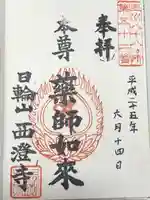 奉拝
平成二十五年
六月十四日
本尊
薬師如来
日輪山西澄寺